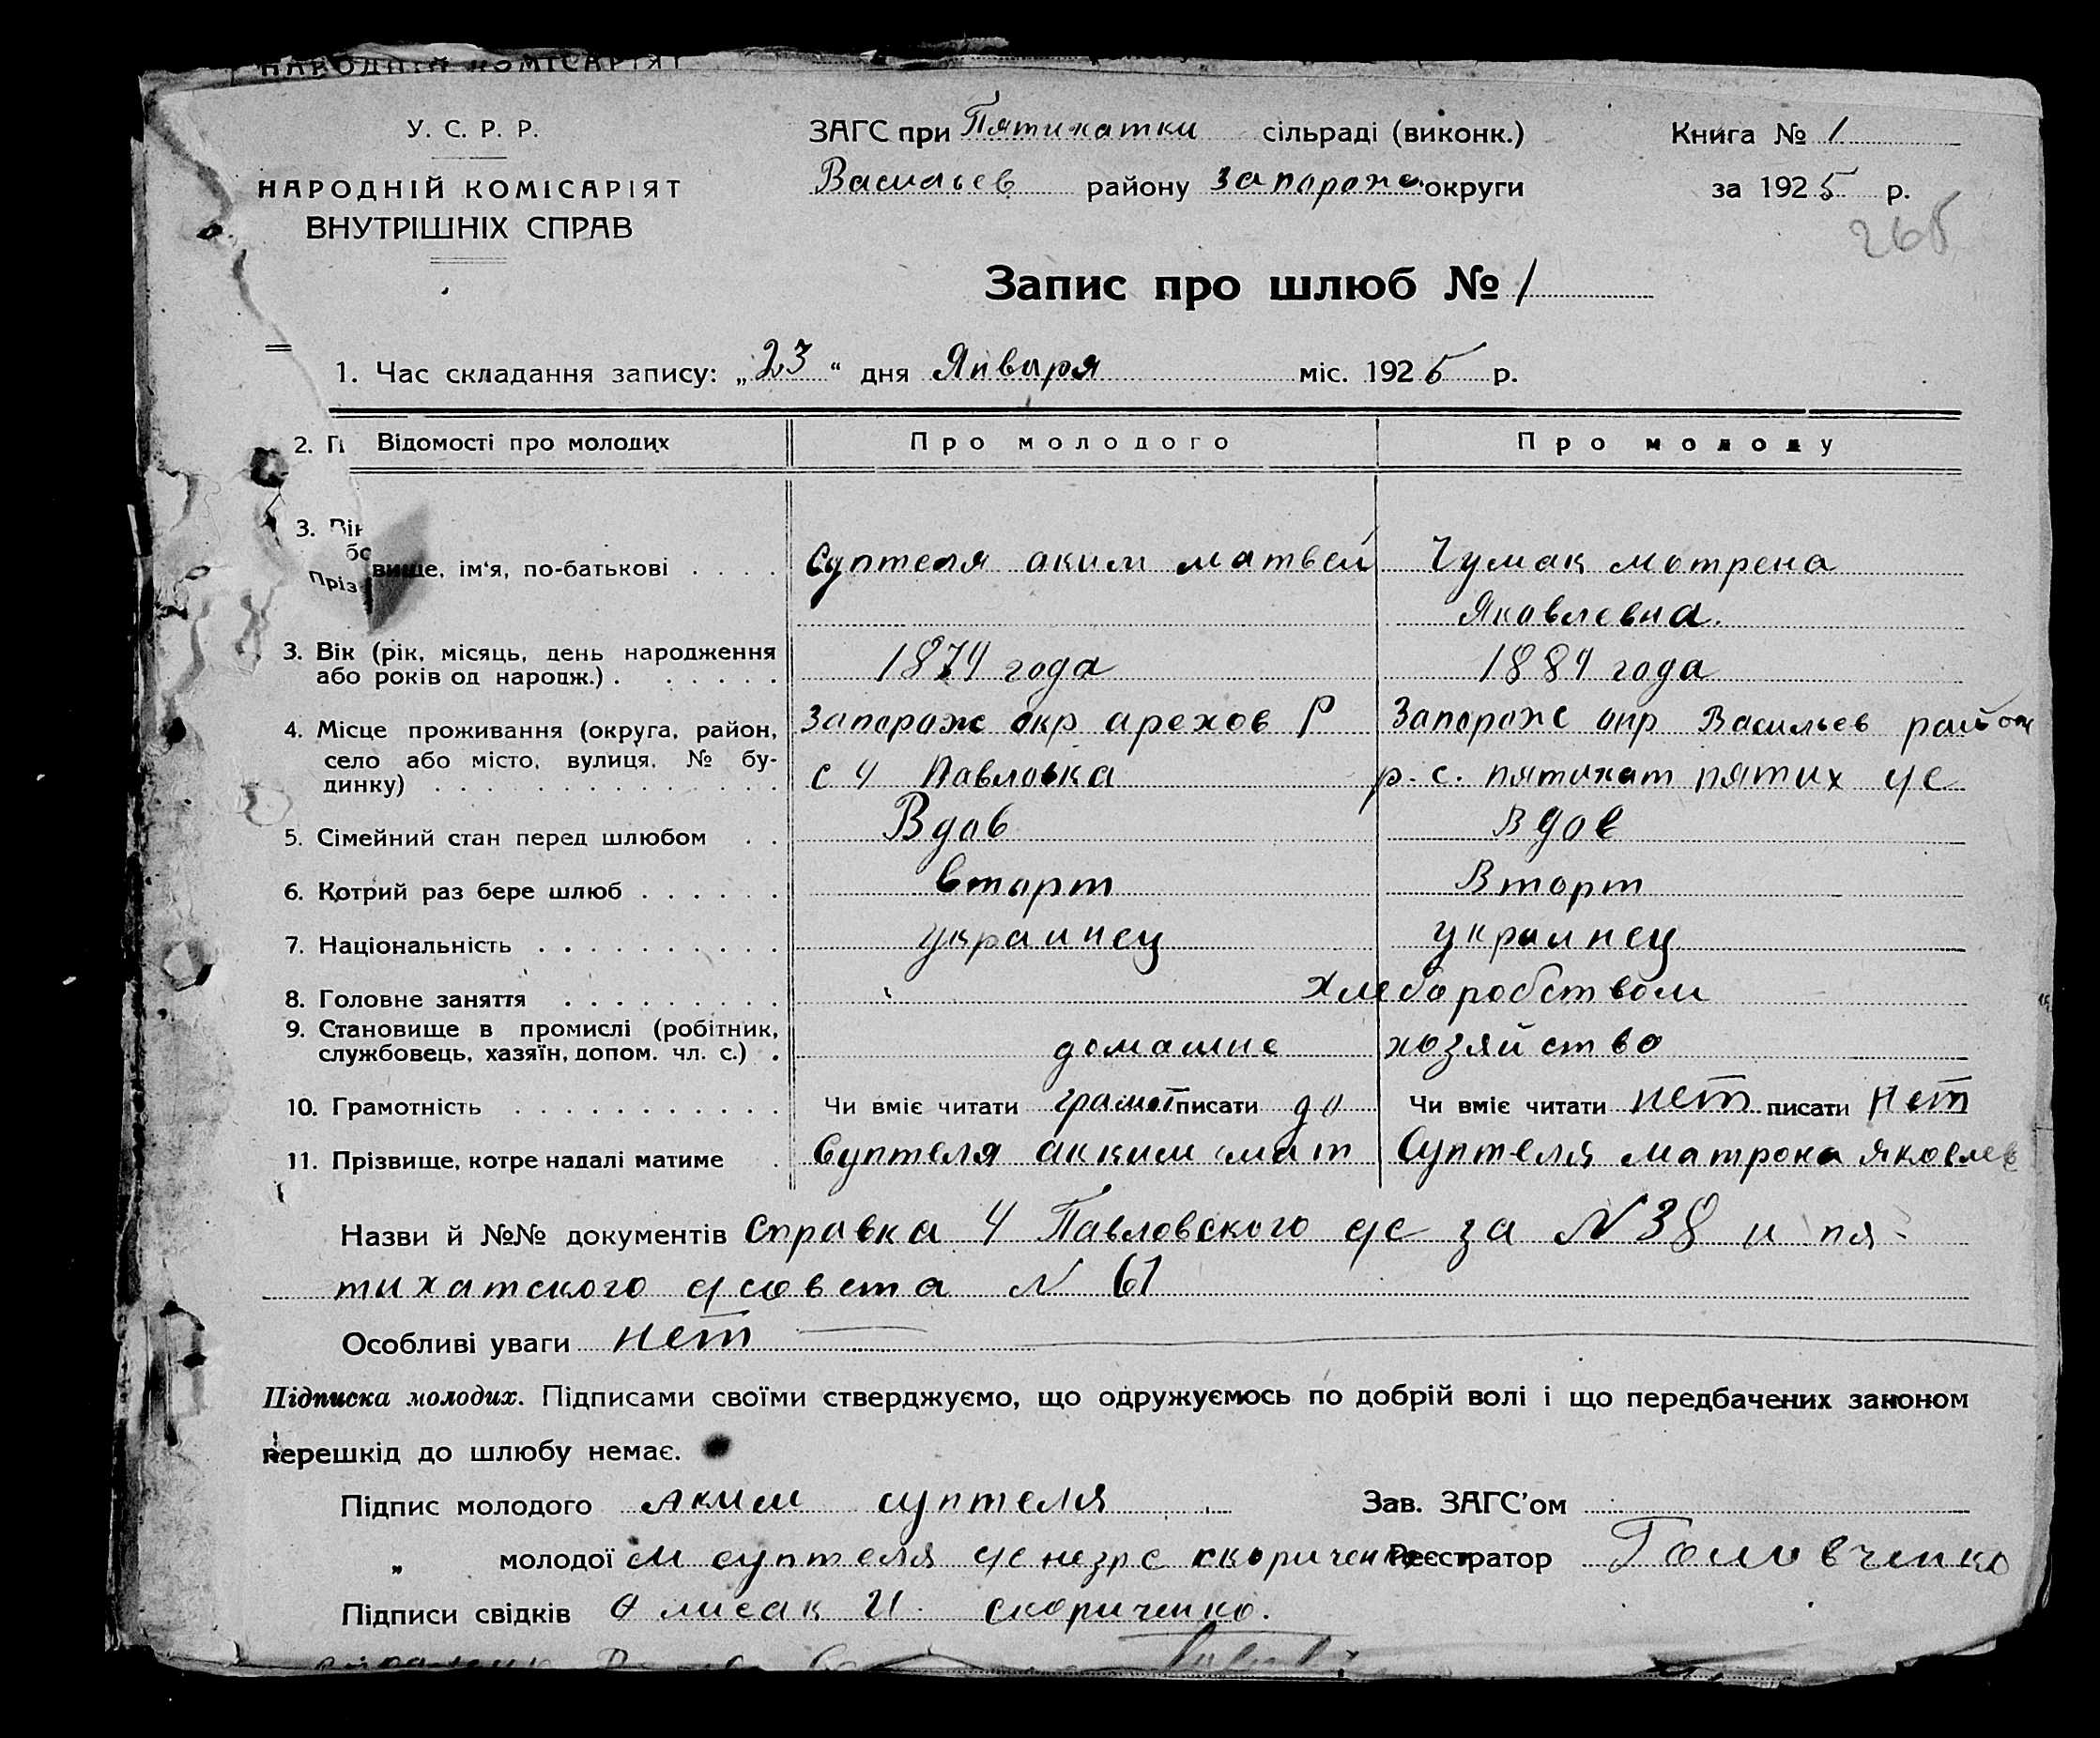 НАРОДНІЙ КОМІСАРІЯТ
У. С. Р. Р.
НАРОДНІЙ КОМІСАРІЯТ
ВНУТРІШНІХ СПРАВ
ЗАГС при Пятихатки сільраді (виконк.)
Васильев району Запорожс округи
Книга № 1
за 1925 р.
265
Запис про шлюб № 1
1. Час складання запису: „23“ дня Января міс. 1925 р.
2. П Відомості про молодих Про молодого Про молоду
3. Вік
бо
Прізвище, ім'я, по-батькові . . . . Суптеля аким матвей Чумак мотрена
Яковлевна.
3. Вік (рік, місяць, день народження
або років од нардж.) . . . . . . 1874 года 1884 года
4. Місце проживання (округа, район,
село або місто, вулиця, № бу-
динку) . . . . . . . . . . . . .
Запорож окр арехов Р Запорожс окр Васильев район
с 4 Павловка р. с. пятихат пятих с/с
5. Сімейний стан перед шлюбом . . Вдов вдов
6. Котрий раз бере шлюб . . . . . . вторт Вторт
7. Національність . . . . . . . . . . украинец украинец
8. Головне заняття . . . . . . . . . Хлеборобством
9. Становище в промислі (робітник,
службовець, хазяїн, допом. чл. с.) . домашне хозяйство
10. Грамотність . . . . . . . . . . . Чи вміє читати грамот писати до Чи вміє читати нет писати нет
11. Прізвище, котре надалі матиме . Суптеля акким мат Суптеля матрона яковлев
Назви й №№ документів Справка 4 Павловского с/с за N 38 и пя-
тихатского с/совета N 61
Особливі уваги нет
Підписка молодих. Підписами своїми стверджуємо, що одружуємось по добрій волі і що передбачених законом
перешкід до шлюбу немає.
Підпис молодого Аким суптеля Зав. ЗАГС'ом
„ молодої м суптеля скориченко Реєстратор Головченко
Підписи свідків лисак И. скориченко.